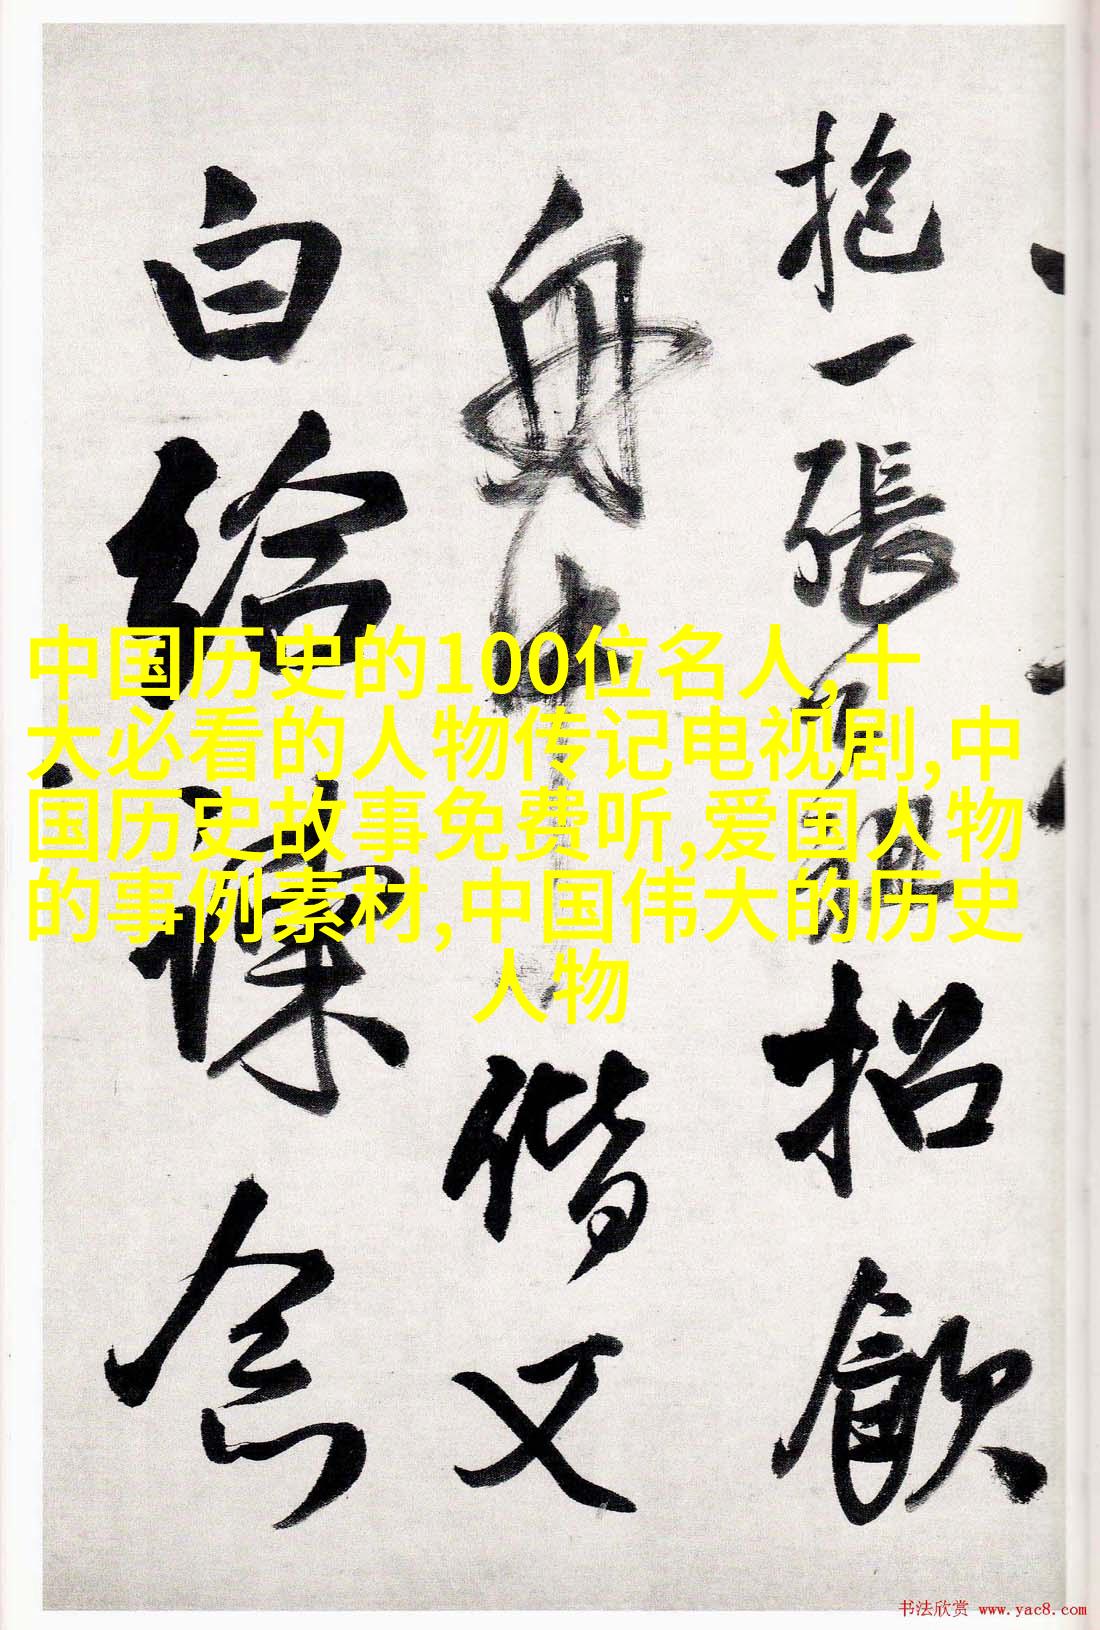 抱一張
招飲
舟中
偕又
白給諫
念
中国历史的100位名人,十
大必看的人物传记电视剧,中
国历史故事免费听,爱国人物
的事例素材,中国伟大的历史
人物
书法欣赏 www.yac8.com